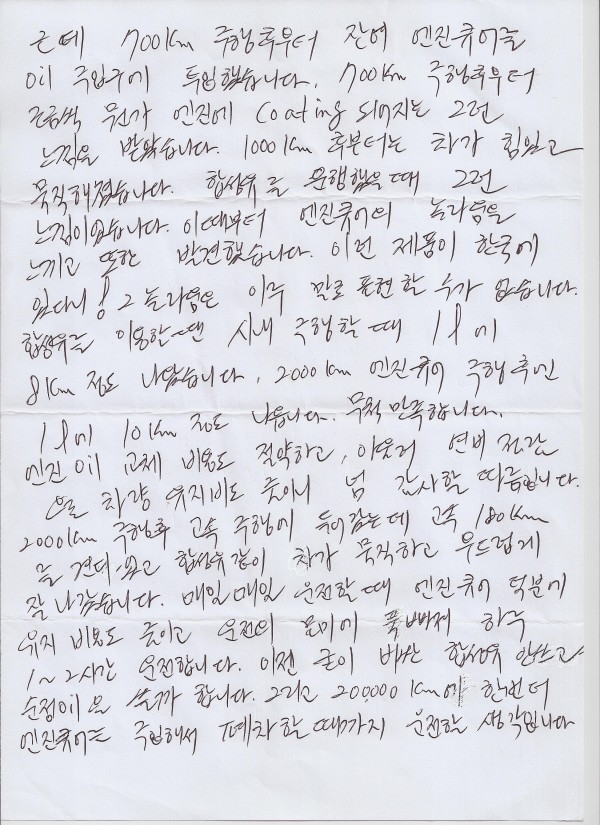 근데 700km 주행후부터 잔여 엔진큐어를
oil 주입구에 투입했습니다. 700km 주행후부터
조금씩 무언가 엔진에 coating 되어지는 그런
느낌을 받았습니다. 1000km 후부터는 차가 힘있고
묵직해졌습니다. 합성유를 운행했을때 그런
느낌이었습니다. 이때부터 엔진큐어의 놀라움을
느끼고 또한 발견했습니다. 이런 제품이 한국에
있다니! 그 놀라움은 이루 말로 표현할 수가 없습니다.
합성유를 이용한땐 시내 주행할때 1l에
8km 정도 나왔습니다. 2000km 엔진큐어 주행후엔
1l에 10km 정도 나옵니다. 무척 만족합니다.
엔진 oil 교체 비용도 절약하고, 아울러 연비 절감
으로 차량 유지비도 줄이니 넘 감사할 따름입니다.
2000km 주행후 고속 주행에 들어갔는데 고속 180km
를 견디었고 합성유같이 차가 묵직하고 부드럽게
잘 나갔습니다. 매일매일 운전할때 엔진큐어 덕분에
유지 비용도 줄이고 운전의 묘미에 푹빠져 하루
1~2시간 운전합니다. 이젠 굳이 비싼 합성유 안쓰고
순정oil을 쓸까 합니다. 그리고 20,000km에 한번 더
엔진큐어를 주입해서 폐차할때까지 운전할 생각입니다